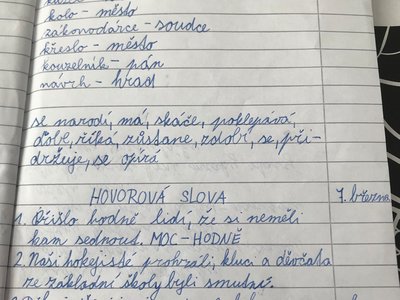 kolo – město
zákonodárce – soudce
křeslo – město
kouzelník – pán
návrh – hrad
se narodí, má, skáče, poklepává,
zlobí, říká, zůstane, zdobí, se, při-
držuje, se opírá
HOVOROVÁ SLOVA
7. března
1. Přišlo hodně lidí, že si neměli
kam sednout. MOC – HODNĚ
2. Naši hokejisté prohráli, kluci a děvčata
ze základní školy byli smutní.